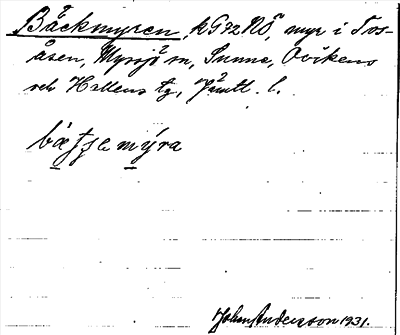 Bäckmyren, kG72NÖ, myr i Tos-
åsen, Myssjö sn, Sunne, Ovikens
och Hallens tg, Jämtl. l.
bætje mýra
John Andersson 1931.